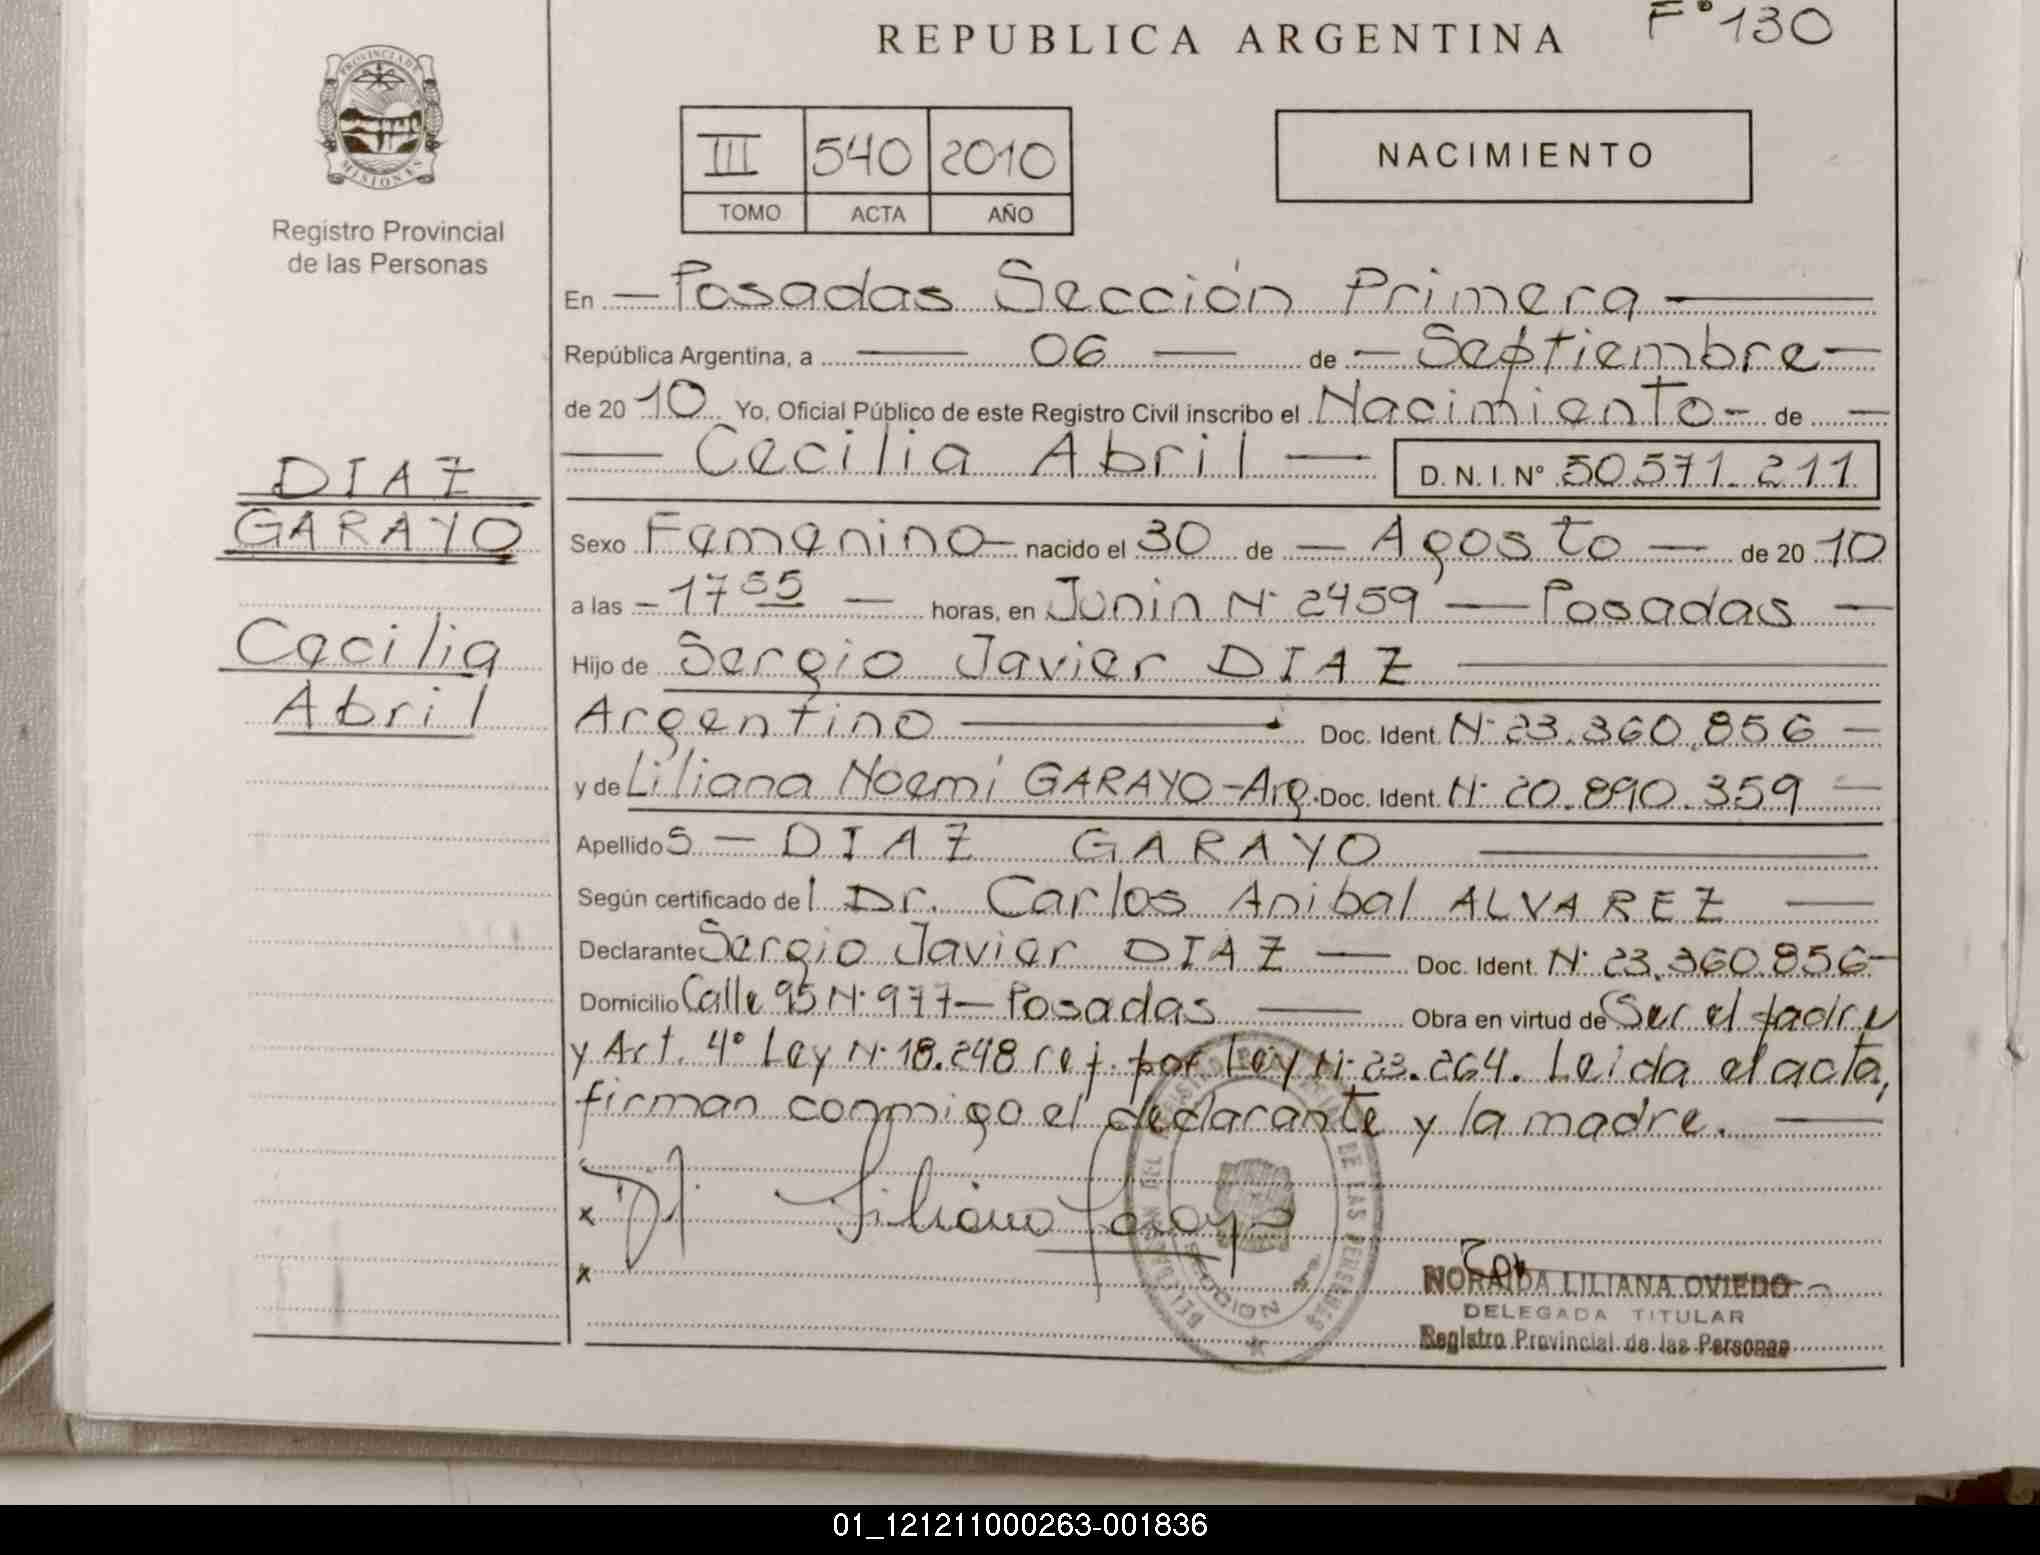 REPUBLICA ARGENTINA
F° 130
PROVINCIA DE
MISIONES
Registro Provincial
de las Personas
III 540 2010
TOMO ACTA AÑO
NACIMIENTO
En — Posadas Sección Primera —
República Argentina, a — 06 — de — Septiembre —
de 20 10 Yo, Oficial Público de este Registro Civil inscribo el Nacimiento - de —
— Cecilia Abril — D. N. I. N° 50.571.211
DIAZ
GARAYO
Cecilia
Abril
Sexo Femenino — nacido el 30 de — Agosto — de 20 10
a las — 17 55 — horas, en Junin N· 2459 — Posadas —
Hijo de Sergio Javier DIAZ —
Argentino — Doc. Ident. N· 23.360.856 —
y de Liliana Noemí GARAYO - Arg. Doc. Ident. N· 20.890.359 —
Apellidos — DIAZ GARAYO —
Según certificado del Dr. Carlos Anibal ALVAREZ —
Declarante Sergio Javier DIAZ — Doc. Ident. N· 23.360.856 —
Domicilio Calle 95 N· 977 — Posadas — Obra en virtud de Ser el padre
y Art. 4° Ley N· 18.248 ref. por Ley N· 23.264. Leida el acta,
firman conmigo el declarante y la madre. —
x Liliana Garayo
x
NORAIDA LILIANA OVIEDO
DELEGADA TITULAR
Registro Provincial de las Personas
01_121211000263-001836